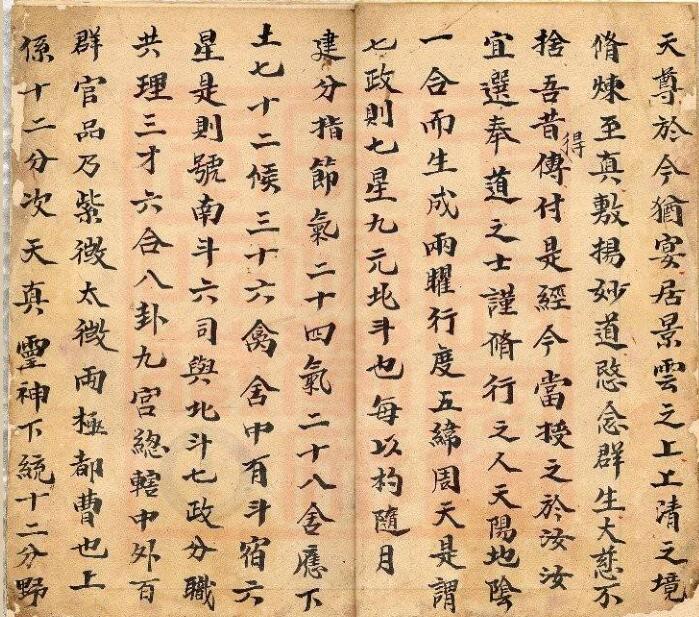 天尊於今猶宴居景雲之上上清之境
脩煉至真敷揚妙道愍念群生大慈不
捨吾昔得傳付是經今當授之於汝汝
宜選奉道之士謹脩行之人天陽地陰
一合而生成兩曜行度五緯周天是謂
七政則七星九元北斗也每以杓隨月
建分指節氣二十四氣二十八舍應下
土七十二候三十六禽舍中有斗宿六
星是則號南斗六司與北斗七政分職
共理三才六合八卦九宮総轄中外百
群官品乃紫微太微兩極都曹也上
係十二分次天真靈神下統十二分野